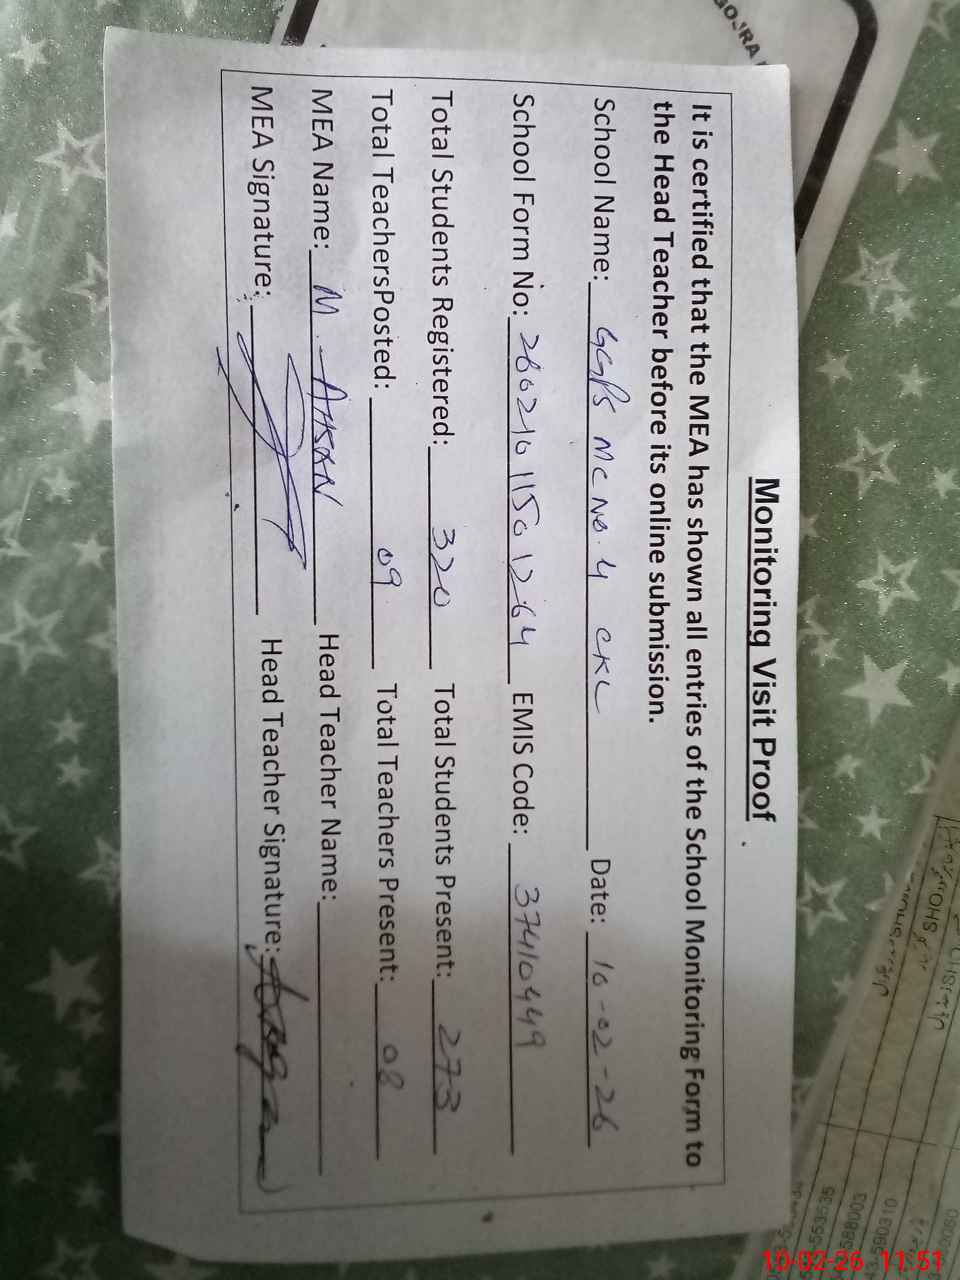 Monitoring Visit Proof
It is certified that the MEA has shown all entries of the School Monitoring Form to
the Head Teacher before its online submission.
School Name: GGPS MC No. 4 CKL Date: 10-02-26
School Form No: 26021011501264 EMIS Code: 37410449
Total Students Registered: 320 Total Students Present: 273
Total TeachersPosted: 09 Total Teachers Present: 08
MEA Name: M. AHSAN Head Teacher Name:
MEA Signature: Head Teacher Signature:
GOJRA
10-02-26 11:51